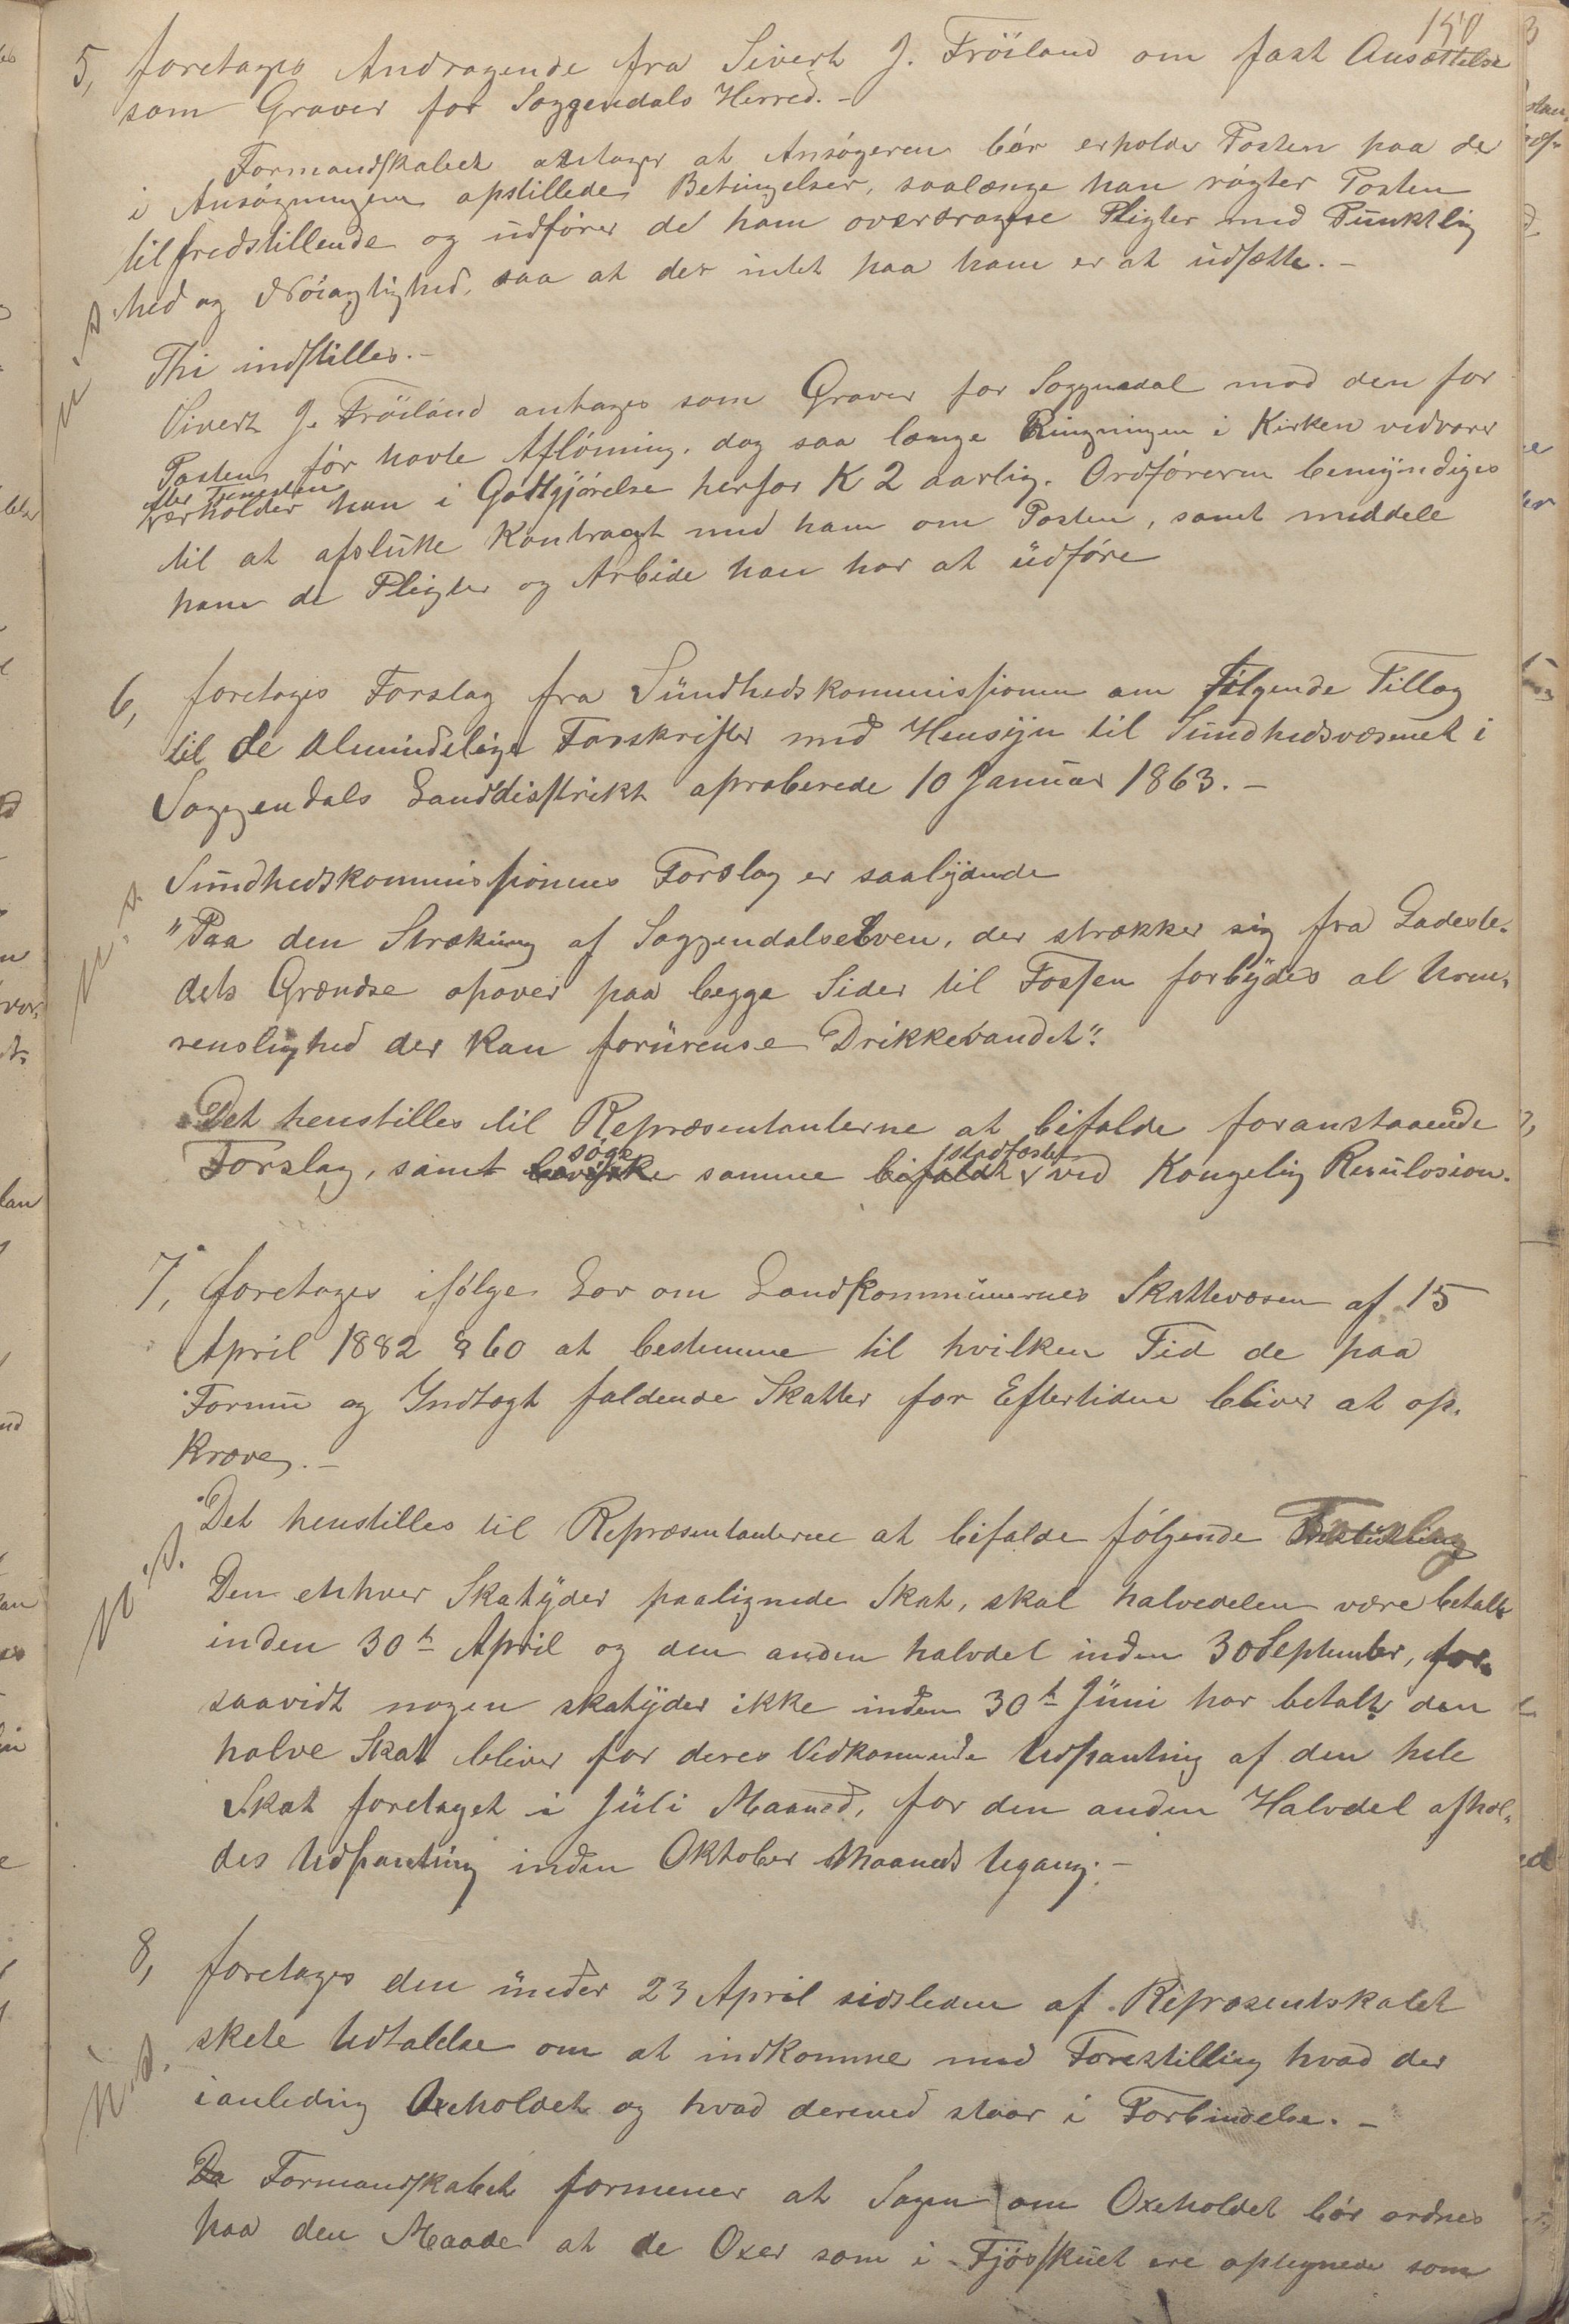 150
5, foretages Andragende fra Sivert J. Fröiland om fast Ansættelse
som Graver for Soggendals Herred. –
Formandskabet antager at Ansøgeren bör erholde Posten paa de
i Ansøgningen opstillede Betingelser, saalænge han røgter Posten
tilfredstillende og udfører de ham overdragne Pligter med Punktlig
hed og Nöiagtighed, saa at der intet paa ham er at udsætte. –
Thi indstilles. –
Sivert J. Fröiland antages som Graver for Soggendal mod den for
Posten för havte Aflönning, dog saa længe Ringningen i Kirken vedvarer
efter Tjenesten
erholder han i Godtgjörelse herfor K 2 aarlig. Ordföreren bemyndiges
til at afslutte Kontragt med ham om Posten, samt meddele
ham de Pligter og Arbeide han har at udföre
6, foretages Forslag fra Sundhedskommissionen om Følgende Tillæg
til de Almindelige Forskrifter med Hensyn til Sundhedsvæsenet i
Soggendals Landdistrikt aproberede 10 Januar 1863. –
Sundhedskommissionens Forslag er saalydende
"Paa den Strækning af Soggendalselven, der strækker sig fra Ladeste-
dets Grændse opover paa begge Sider til Fossen forbydes al Uren-
renslighed der kan forurense Drikkevandet".
Det henstilles til Repræsentanterne at bifalde foranstaaende
søge stadfæstet
Forslag, samt bevirke samme bifaldt ved Kongelig Resulosion.
7, foretages ifölge Lov om Landkommunernes Skattevæsen af 15
April 1882 § 60 at bestemme til hvilken Tid de paa
Formu og Indtægt faldende Skatter for Eftertiden bliver at op-
kræves. –
Det henstilles til Repræsentanterne at bifalde følgende Forslag
Den enhver Skatyder paalignede Skat, skal halvedelen være betalt
inden 30t April og den anden halvdel inden 30 September, for-
saavidt nogen skatyder ikke inden 30t Juni har betalt den
halve Skat bliver for deres Vedkommende Udpantning af den hele
Skat foretaget i Juli Maaned, for den anden Halvdel afhol-
des Udpantning inden Oktober Maaneds Ugang. –
8, foretages den under 23 April sidsleden af Repræsentskabet
skete Udtalelse om at indkomme med Forestilling hvad der
ianleding Oxeholdet og hvad dermed staar i Forbindelse. –
Da Formandskabet formener at Sagen om Oxeholdet bör ordnes
paa den Maade at de Oxer som i Fjösskuet ere optegnede som